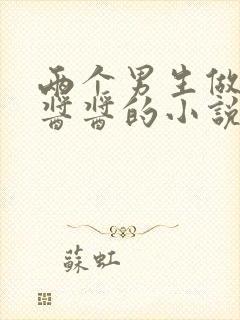 两个男生做
酱酱的小說
蘇虹